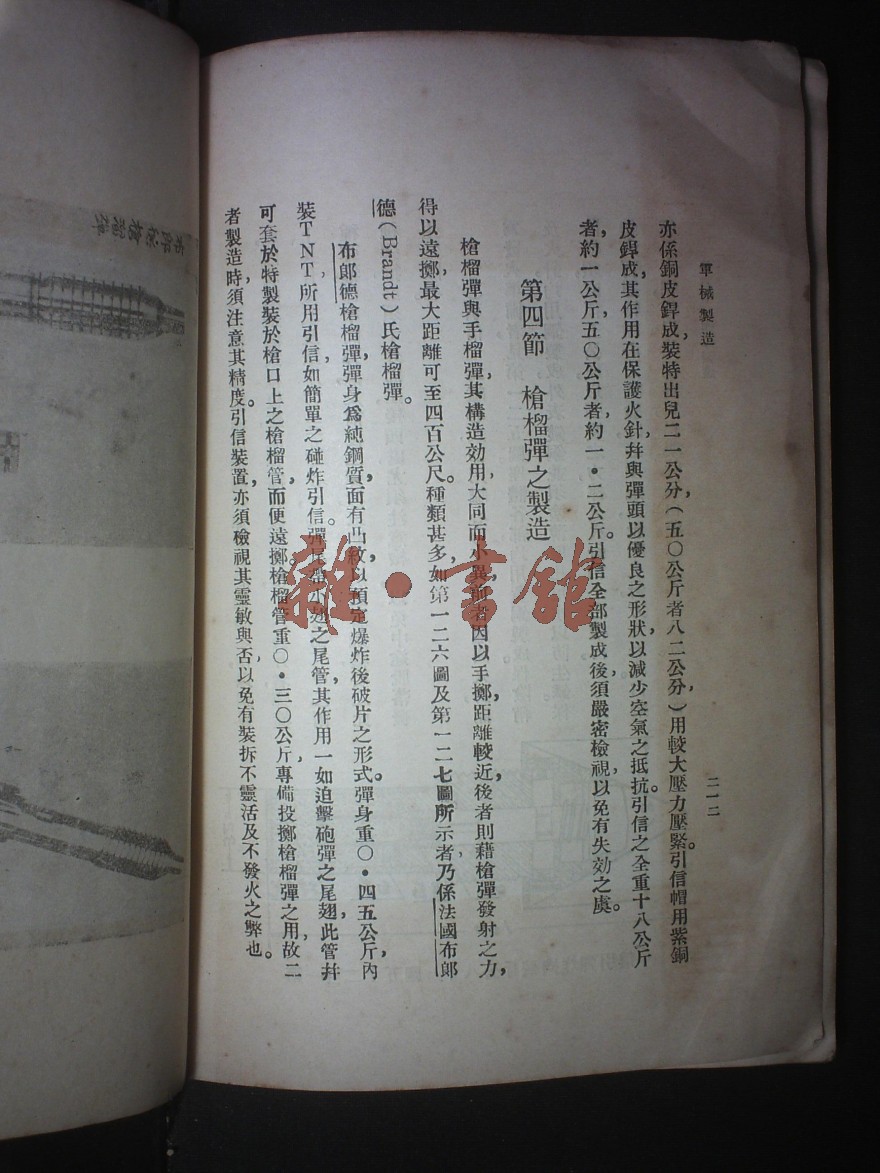 軍械製造
二一二
亦係銅皮銲成,裝特出兒二一公分,(五〇公斤者八二公分,)用較大壓力壓緊。引信帽用紫銅
皮銲成,其作用在保護火針,幷與彈頭以優良之形狀,以減少空氣之抵抗。引信之全重十八公斤
者,約一公斤,五〇公斤者,約一・二公斤。引信全部製成後,須嚴密檢視,以免有失効之虞。
第四節 槍榴彈之製造
槍榴彈與手榴彈,其構造効用,大同而小異,前者因以手擲,距離較近,後者則藉槍彈發射之力,
得以遠擲,最大距離,可至四百公尺。種類甚多,如第一二六圖及第一二七圖所示者,乃係法國布郎
德(Brandt)氏槍榴彈。
布郎德槍榴彈,彈身爲純鋼質,面有凸紋,以預定爆炸後破片之形式。彈身重〇・四五公斤,內
裝TNT,所用引信,如簡單之碰炸引信。彈尾帶小翅之尾管,其作用一如迫擊砲彈之尾翅,此管幷
可套於特製裝於槍口上之槍榴管,而便遠擲。槍榴管重〇・三〇公斤,專備投擲槍榴彈之用,故二
者製造時,須注意其精度。引信裝置,亦須檢視其靈敏與否,以免有裝拆不靈活及不發火之弊也。
雜・書館